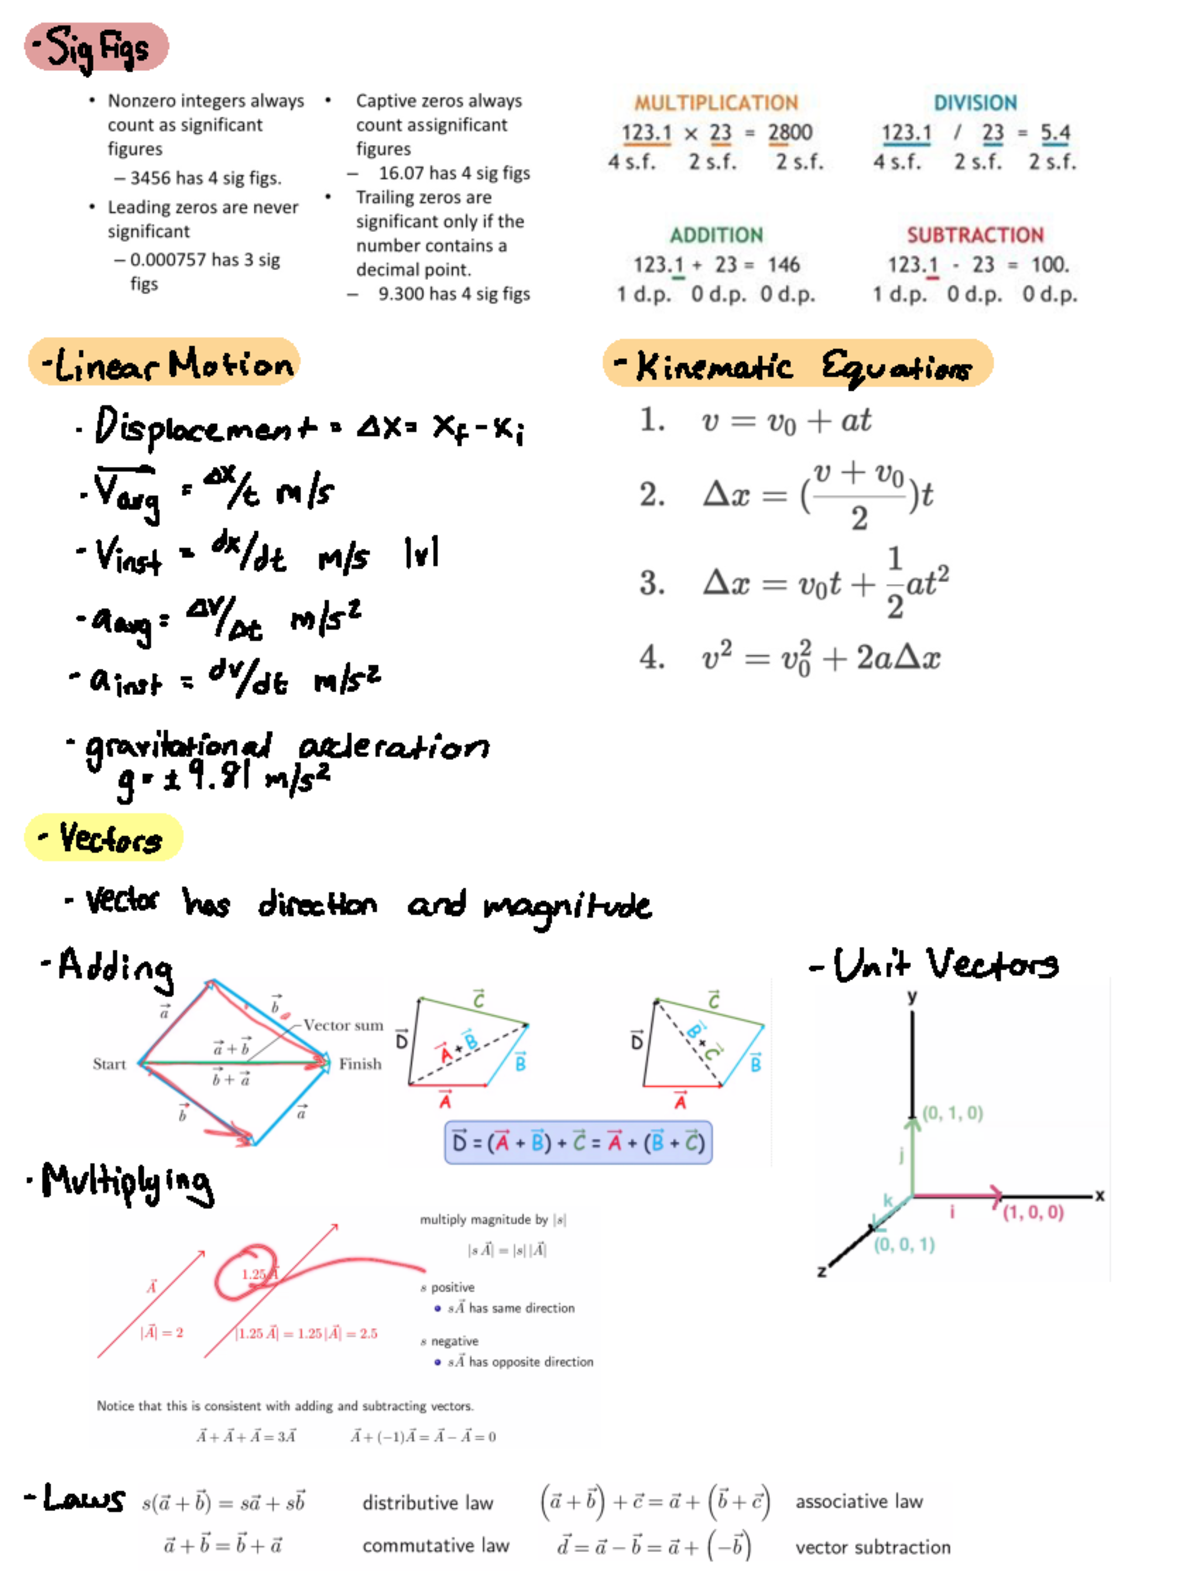 - Sig Figs
• Nonzero integers always
count as significant
figures
– 3456 has 4 sig figs.
• Leading zeros are never
significant
– 0.000757 has 3 sig
figs
• Captive zeros always
count assignificant
figures
– 16.07 has 4 sig figs
• Trailing zeros are
significant only if the
number contains a
decimal point.
– 9.300 has 4 sig figs
MULTIPLICATION
123.1 × 23 = 2800
4 s.f. 2 s.f. 2 s.f.
DIVISION
123.1 / 23 = 5.4
4 s.f. 2 s.f. 2 s.f.
ADDITION
123.1 + 23 = 146
1 d.p. 0 d.p. 0 d.p.
SUBTRACTION
123.1 - 23 = 100.
1 d.p. 0 d.p. 0 d.p.
- Linear Motion
- Displacement = Δx = x_f - x_i
- V⃗avg = Δx/t m/s
- Vinst = dx/dt m/s |v|
- aavg = Δv/Δt m/s²
- ainst = dv/dt m/s²
- gravitational accleration
g = ± 9.81 m/s²
- Kinematic Equations
1. v = v₀ + at
2. Δx = ((v + v₀)/2)t
3. Δx = v₀t + 1/2 at²
4. v² = v₀² + 2aΔx
- Vectors
- vector has direction and magnitude
- Adding
a⃗
b⃗
Vector sum
Start
a⃗ + b⃗
Finish
b⃗ + a⃗
b⃗
a⃗
C⃗
D⃗
A⃗ + B⃗
B⃗
A⃗
C⃗
D⃗
B⃗ + C⃗
B⃗
A⃗
D⃗ = (A⃗ + B⃗) + C⃗ = A⃗ + (B⃗ + C⃗)
- Unit Vectors
y
(0, 1, 0)
j
k
i
x
(1, 0, 0)
(0, 0, 1)
z
- Multiplying
A⃗
|A⃗| = 2
1.25 A⃗
|1.25 A⃗| = 1.25 |A⃗| = 2.5
multiply magnitude by |s|
|s A⃗| = |s| |A⃗|
s positive
• sA⃗ has same direction
s negative
• sA⃗ has opposite direction
Notice that this is consistent with adding and subtracting vectors.
A⃗ + A⃗ + A⃗ = 3A⃗ A⃗ + (−1)A⃗ = A⃗ − A⃗ = 0
- Laws
s(a⃗ + b⃗) = sa⃗ + sb⃗ distributive law
(a⃗ + b⃗) + c⃗ = a⃗ + (b⃗ + c⃗) associative law
a⃗ + b⃗ = b⃗ + a⃗ commutative law
d⃗ = a⃗ − b⃗ = a⃗ + (−b⃗) vector subtraction